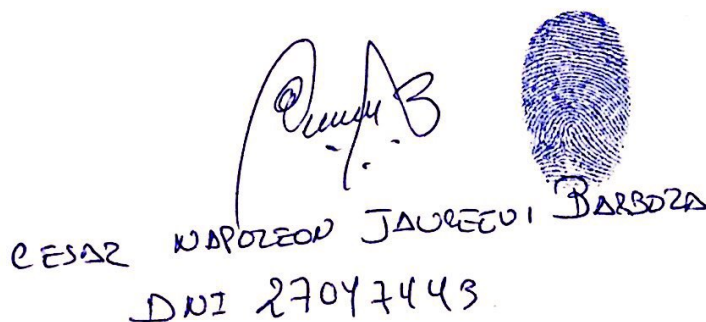 CESAR NAPOLEON JAUREGUI BARBOZA
DNI 27047443